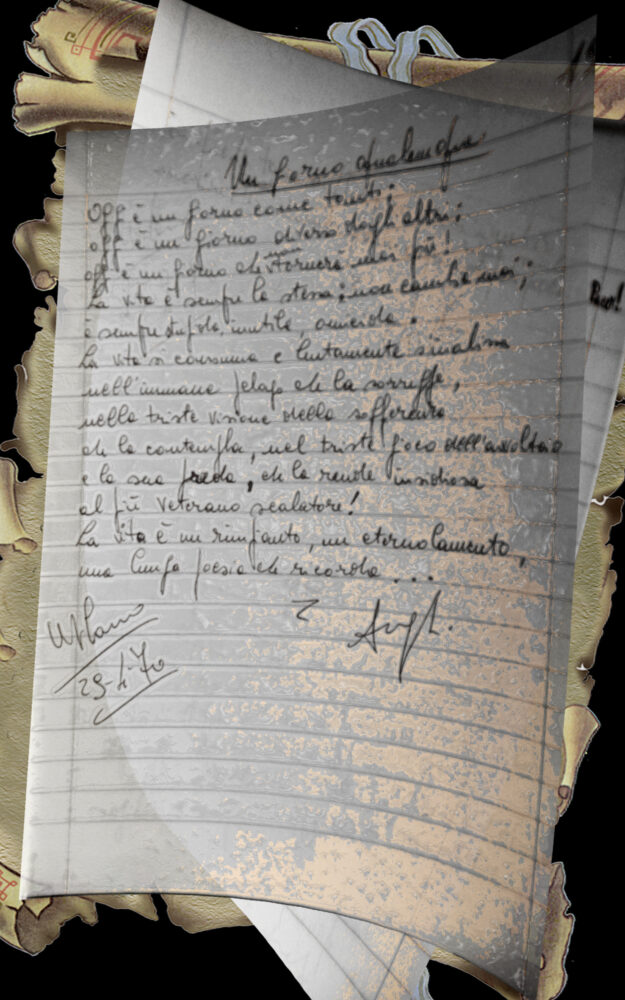 Un giorno qualunque.
Oggi è un giorno come tanti;
oggi è un giorno diverso dagli altri;
oggi è un giorno che non tornerà mai più!
La vita è sempre la stessa; non cambia mai;
è sempre stupida, inutile, omicida.
La vita si consuma e lentamente
nell'immane che la sorregge,
nella triste visione della sofferenza
che la contempla, nel triste gioco dell'avvoltoio
e la sua preda, che la rende insidiosa
al più veterano scalatore!
La vita è un rimpianto, un eterno lamento,
una lunga poesia che ricorda ...
Milano
29-4-70